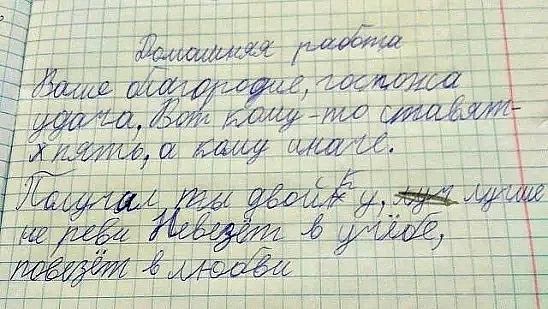 Домашняя работа
Ваше благородие, госпожа
удача. Вот кому-то ставят-
х пять, а кому иначе.
Получал ты двойку, лучше
не реви Невезёт в учёбе,
повезёт в любви